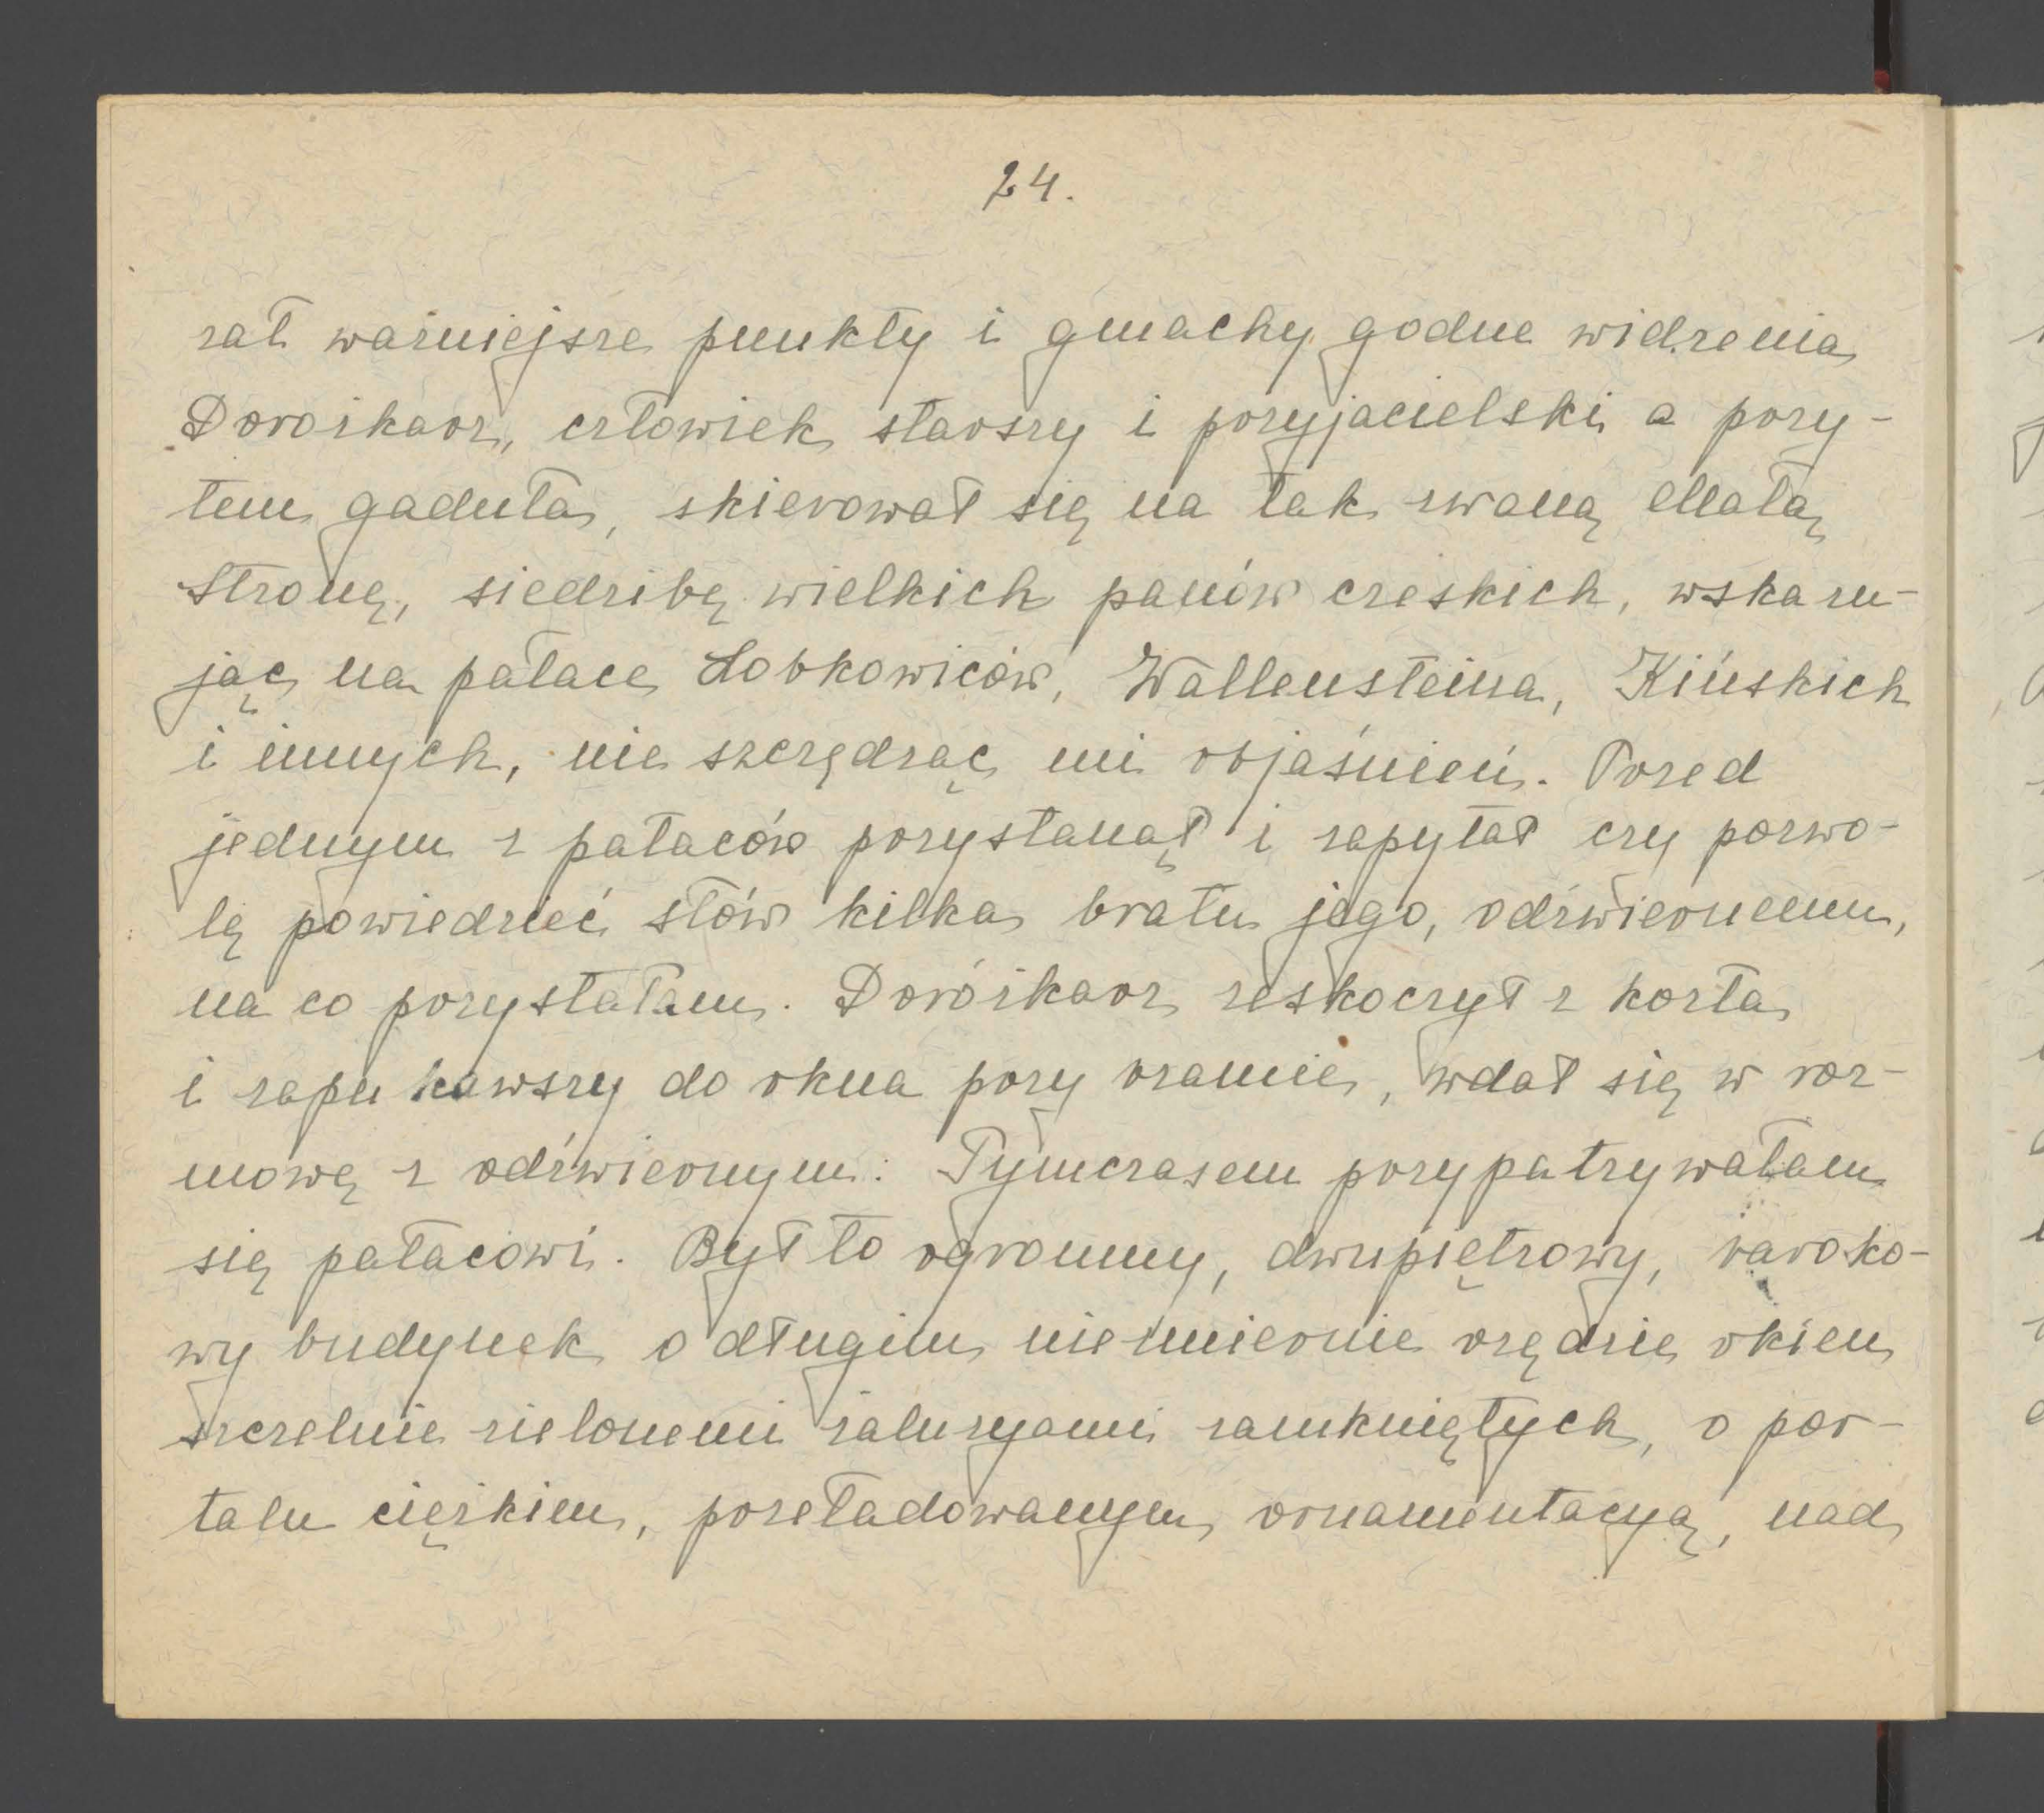 24.
zał ważniejsze punkty i gmachy godne widzenia
Dorożkarz, człowiek starszy i przyjacielski a przy-
tem gaduła, skierował się na tak zwaną Małą
Stronę, siedzibę wielkich panów czeskich, wskazu-
jąc na pałace Lobkowiców, Wallensteina, Kińskich
i innych, nie szczędząc mi objaśnień. Przed
jednym z pałaców przystanął i zapytał czy pozwo-
lę powiedzieć słów kilka bratu jego, odźwiernemu,
na co przystałam. Dorożkarz zeskoczył z kozła
i zapukawszy do okna przy bramie, wdał się w roz-
mowę z odźwiernym. Tymczasem przypatrywałam
się pałacowi. Był to ogromny, dwupiętrowy, baroko-
wy budynek o długim niezmiernie rzędzie okien
szczelnie zielonemi żaluzyami zamkniętych, o por-
talu ciężkim, przeładowanym ornamentacyą, nad